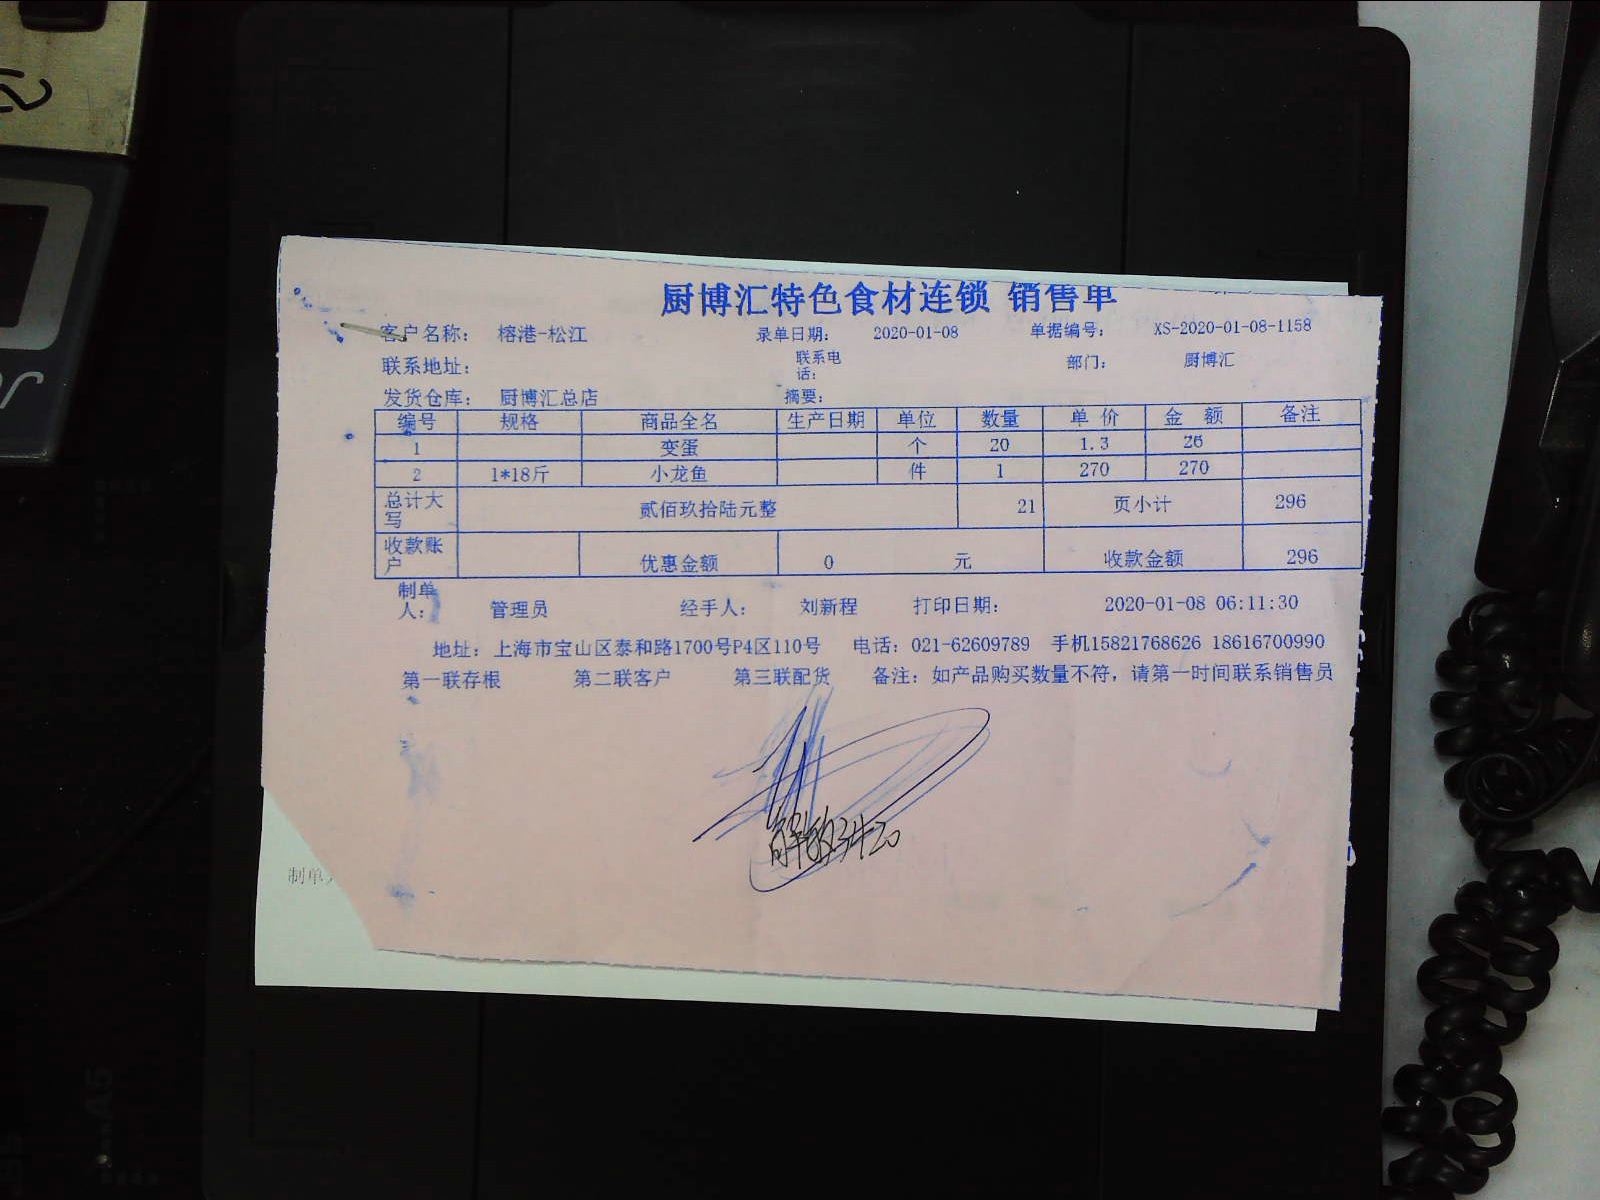 厨博汇特色食材连锁 销售单
客户名称： 榕港-松江 录单日期： 2020-01-08 单据编号： XS-2020-01-08-1158
联系地址： 联系电话： 部门： 厨博汇
发货仓库： 厨博汇总店 摘要：
编号 规格 商品全名 生产日期 单位 数量 单 价 金 额 备注
1 变蛋 个 20 1.3 26
2 1*18斤 小龙鱼 件 1 270 270
总计大写 贰佰玖拾陆元整 21 页小计 296
收款账户 优惠金额 0 元 收款金额 296
制单人： 管理员 经手人： 刘新程 打印日期： 2020-01-08 06:11:30
地址：上海市宝山区泰和路1700号P4区110号 电话：021-62609789 手机15821768626 18616700990
第一联存根 第二联客户 第三联配货 备注：如产品购买数量不符，请第一时间联系销售员
制单